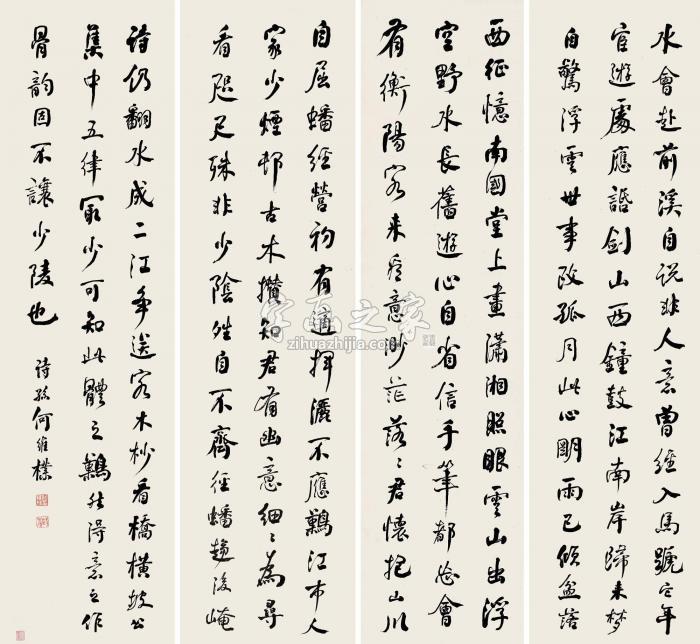 水會赴前溪自說非人意曾經入馬號它年
宦遊處應話劍山西鐘鼓江南岸歸來夢
自驚浮雲世事改孤月此心明雨已傾盆落
西征憶南國堂上畫瀟湘照眼雲山出浮
空野水長舊遊心自省信手筆都忘會
有衡陽客來看意渺茫落〻君懷抱山川
自屈蟠經營初有適揮灑不應難江市人
家少煙邨古木攢知君有幽意細〻為尋
看咫尺殊非少陰晴自不齊徑蟠趨後崦
詩仍翻水成二江爭送客木杪看橋橫坡公
集中五律最少可知此體之難然得意之作
骨韻固不讓少陵也
詩孫何維樸
字画之家
zihuazhijia.com